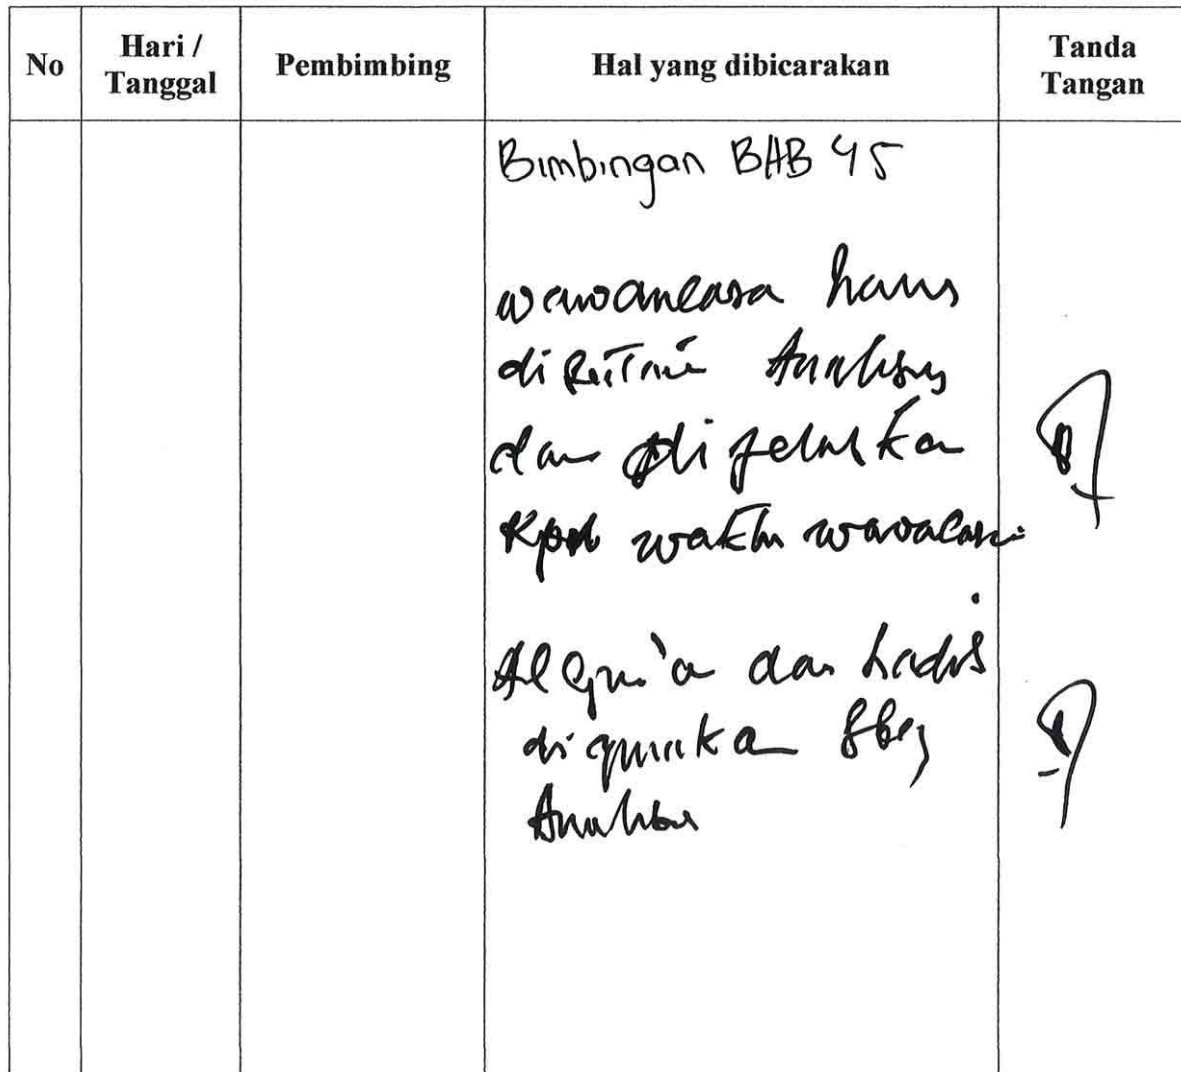 No
Hari /
Tanggal
Pembimbing
Hal yang dibicarakan
Tanda
Tangan
Bimbingan BAB 45
wawancara harus
di Analisis
dan dijelaskan
waktu wawancara
Al Qur'an dan hadis
digunakan sbg
Analisis